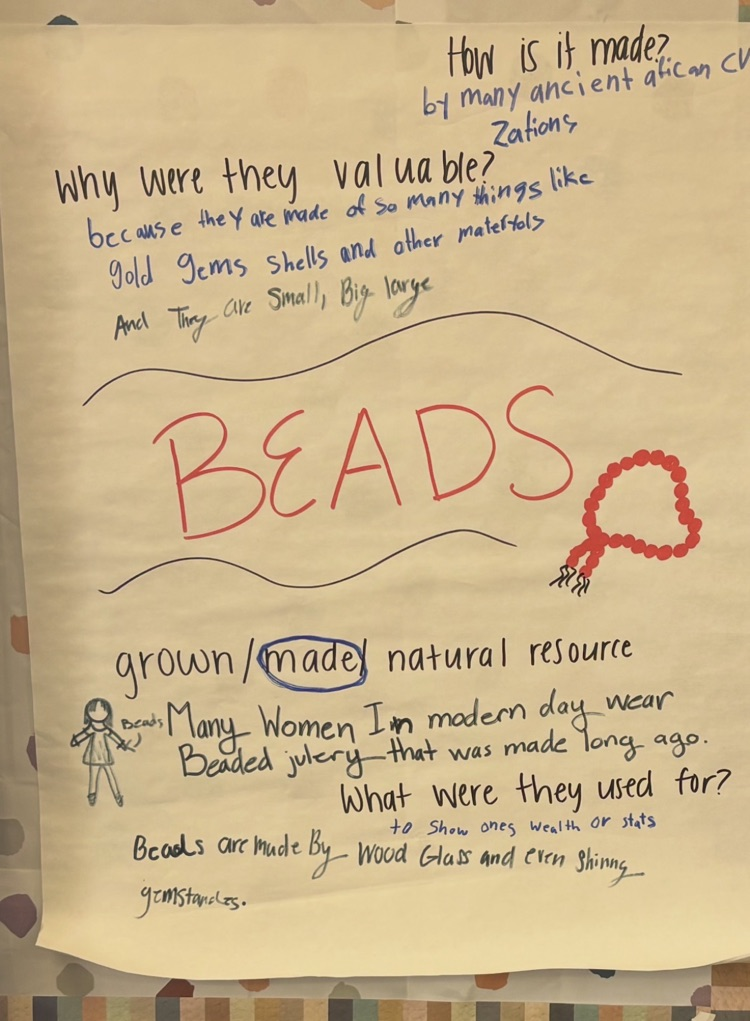 How is it made?
by many ancient afican CV
Zations
Why were they valuable?
because they are made of so many things like
gold gems shells and other materials
And They are Small, Big large
BEADS
grown/made/ natural resource
Beads
Many Women In modern day wear
Beaded julery that was made long ago.
What were they used for?
to show ones wealth or stats
Beads are made By Wood Glass and even shinng